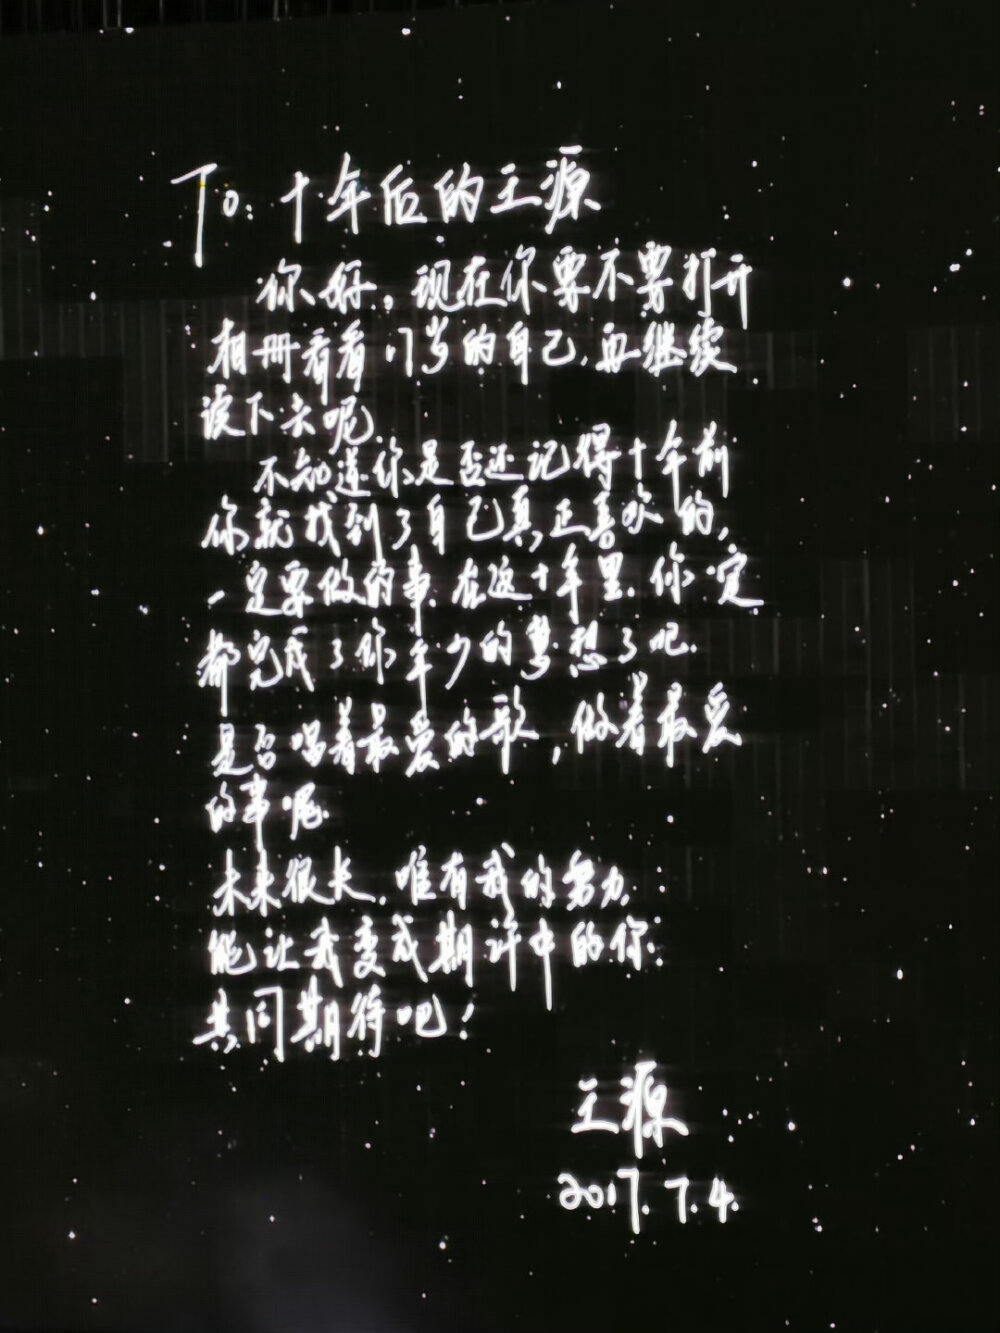 To: 十年后的王源
你好，现在你要不要打开
相册看看17岁的自己，再继续
读下去呢
不知道你是否还记得十年前
你就找到了自己真正喜欢的，
一定要做的事，在这十年里，你一定
都完成了你年少的梦想了吧.
是否唱着最爱的歌，做着最爱
的事呢.
未来很长，唯有我的努力，
能让我变成期许中的你.
共同期待吧！
王源
2017.7.4.